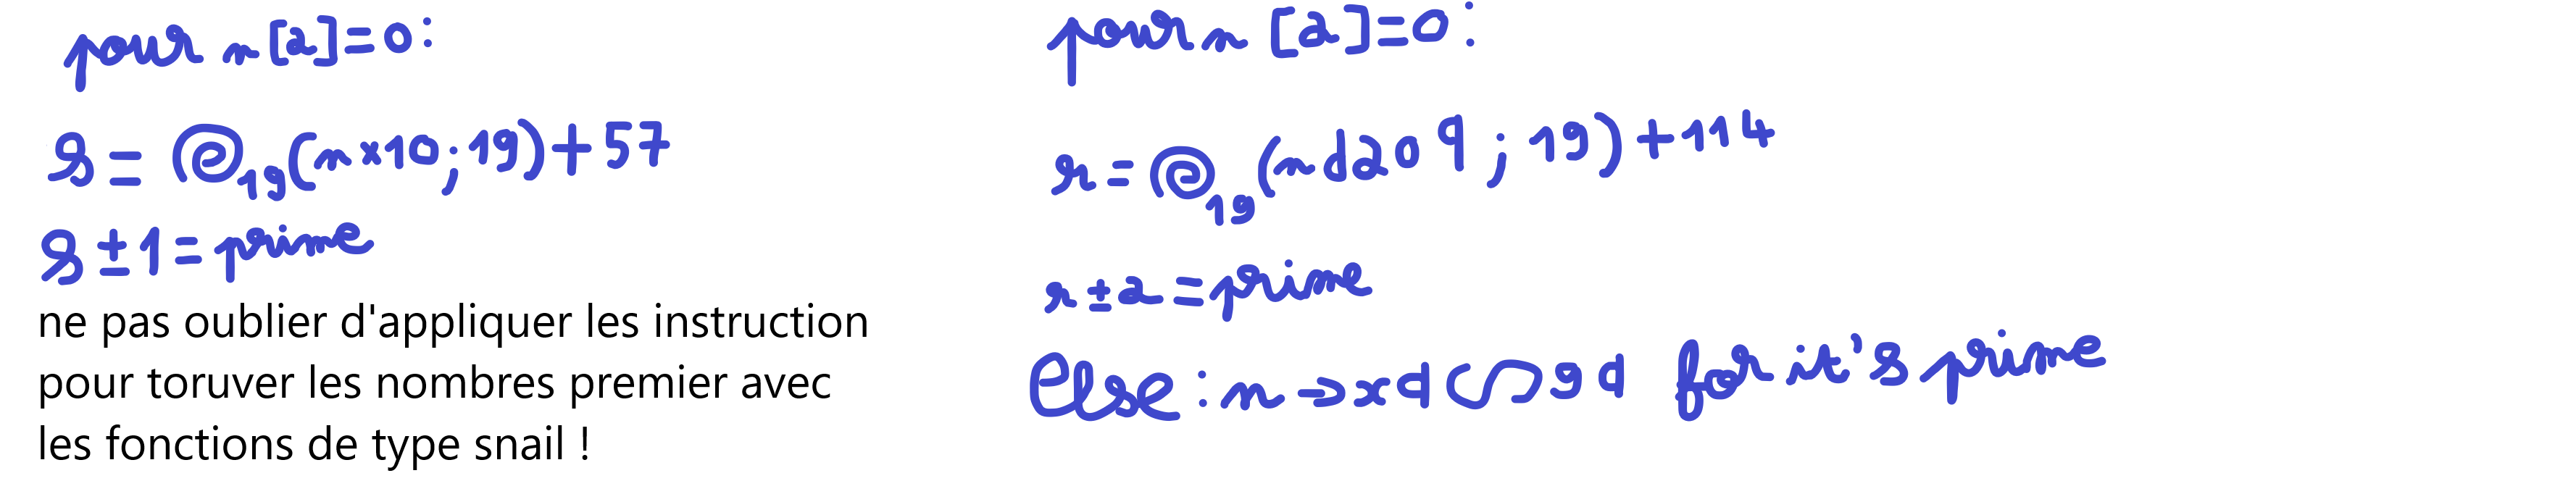 pour n [2]=0:
S = @19(n×10;19)+57
S ± 1 = prime
ne pas oublier d'appliquer les instruction
pour toruver les nombres premier avec
les fonctions de type snail !
pour n [2]=0:
r = @19(nd20q;19)+114
r ± 2 = prime
Else: n → xq 9q for it's prime